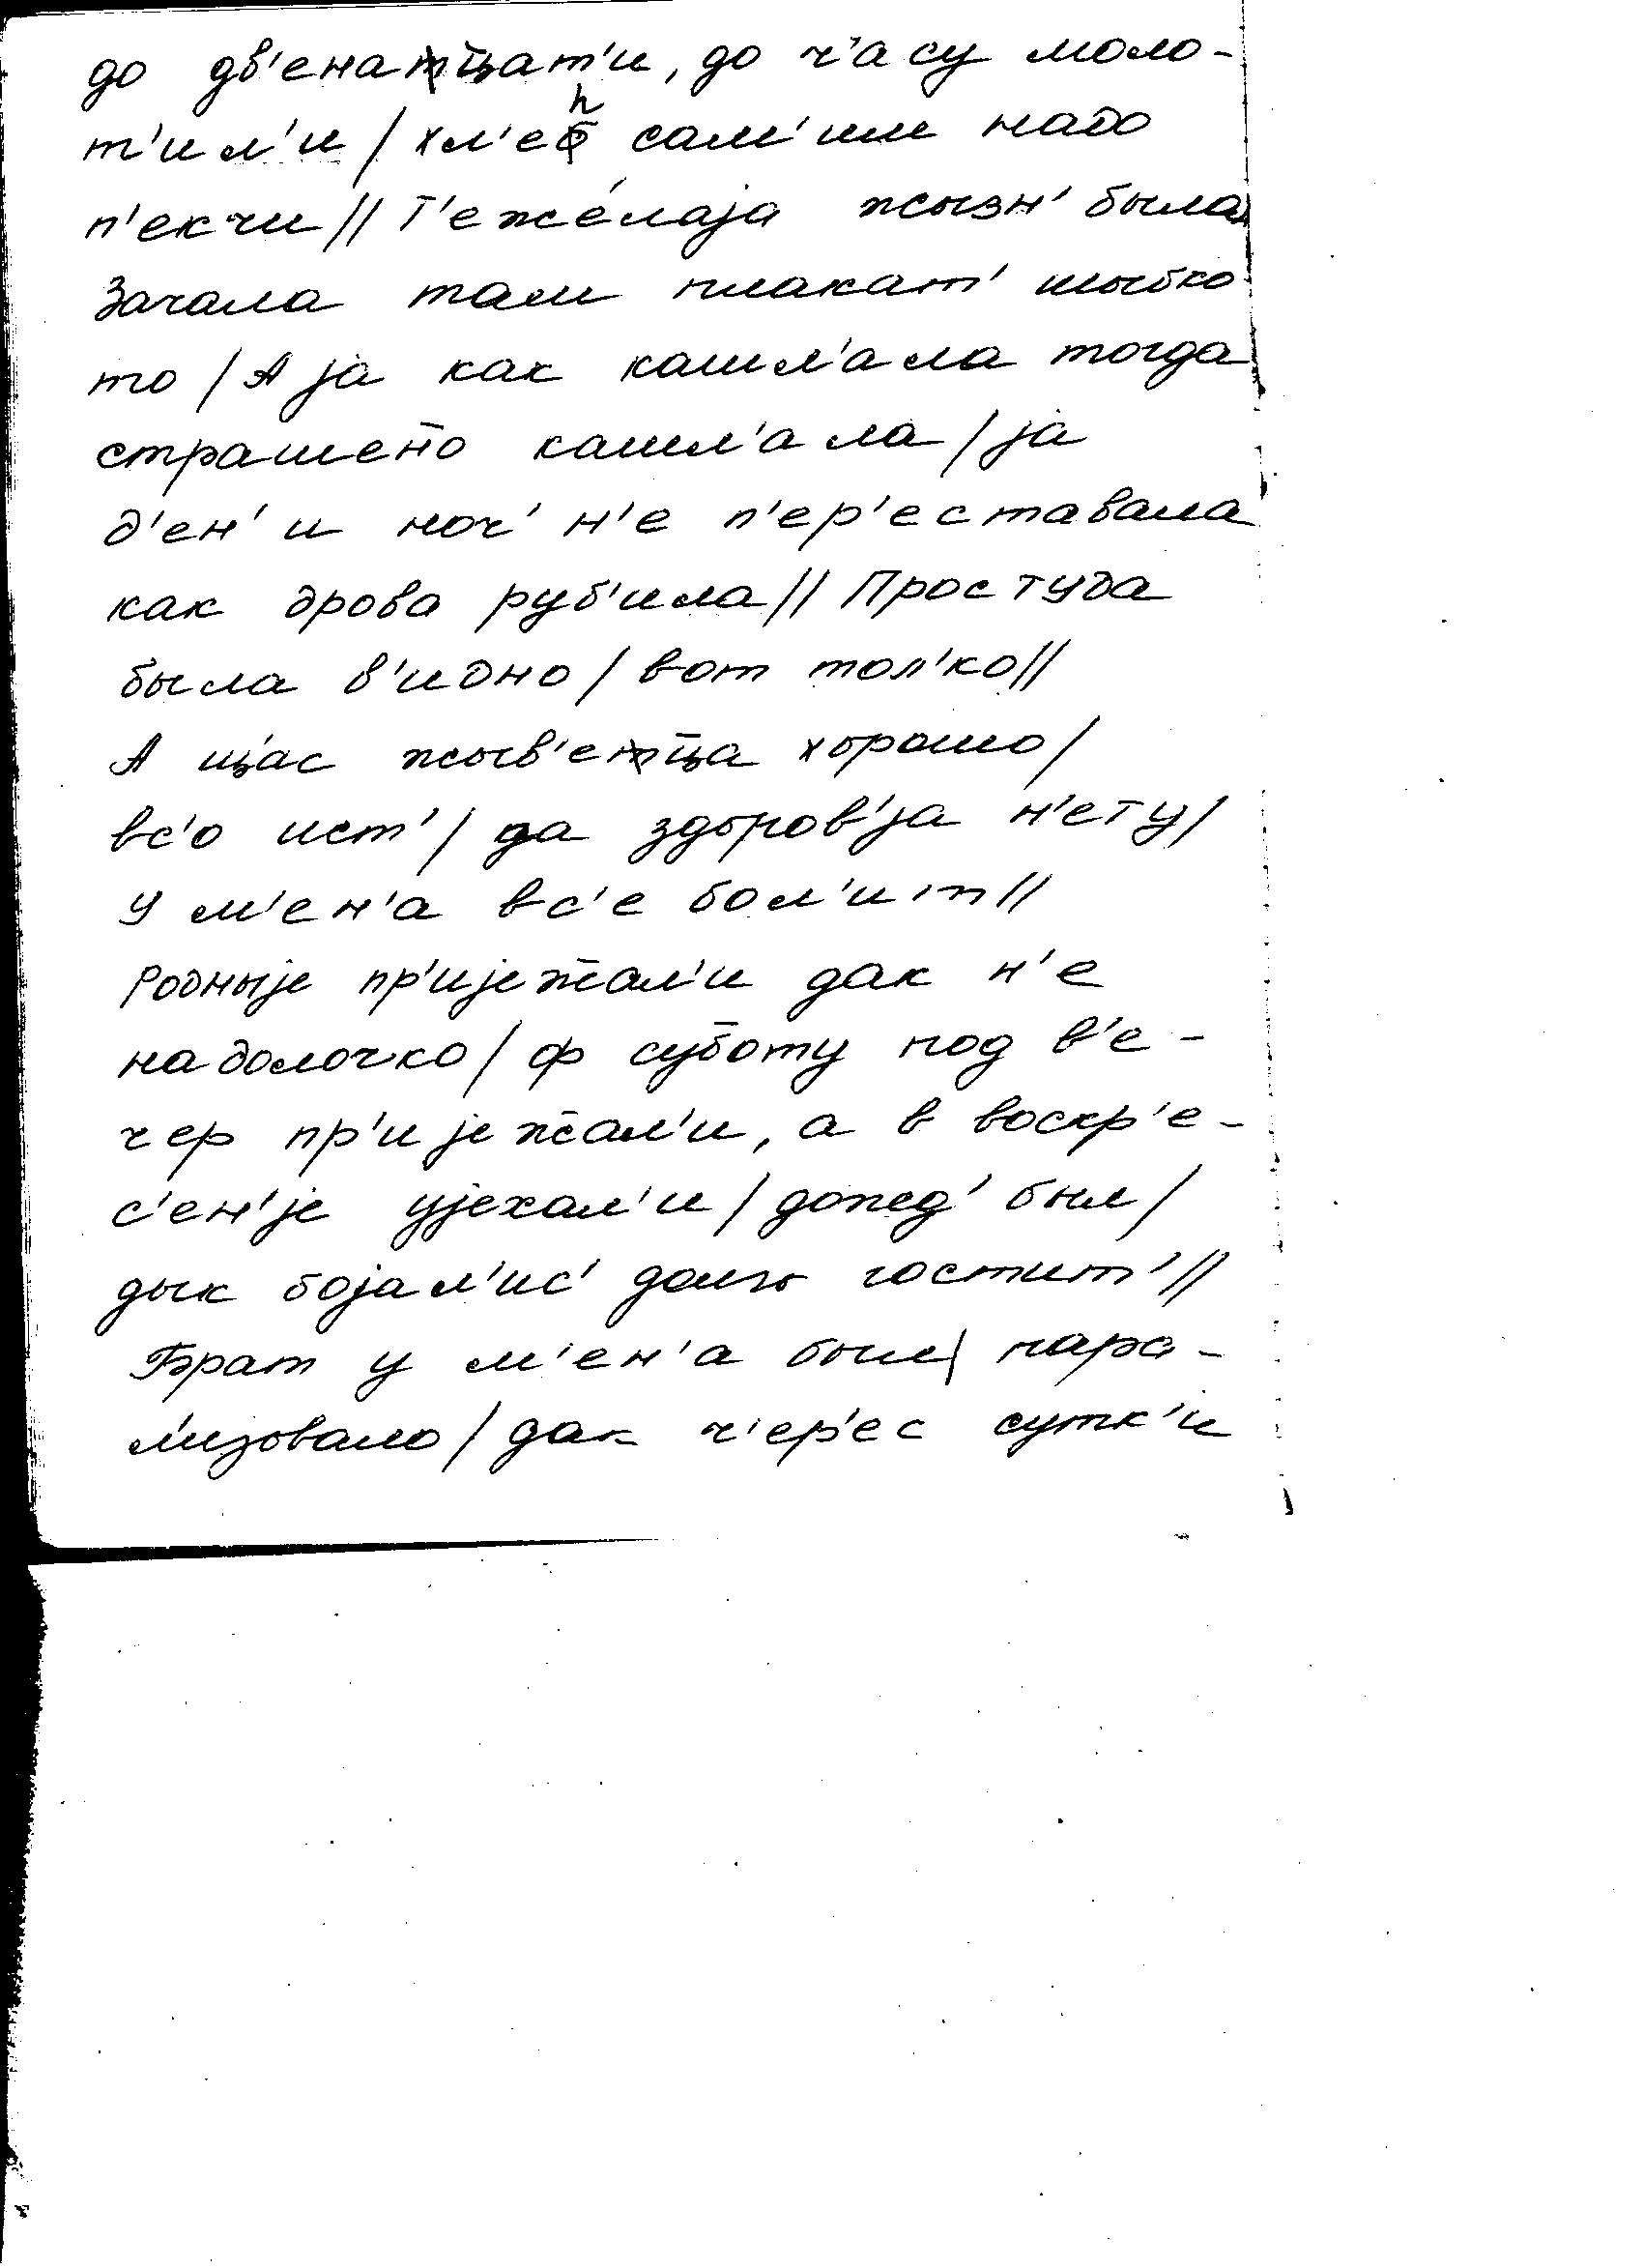 до дв'енац̄ат'и, до ч'асу моло-
т'ил'и / хл'еп сам'им надо
п'екчи // Т'еже́лаjа жызн' была
Зачала там плакат' шыбко
то / А jа как кашл'ала тогда
страшен̄о кашл'ала / jа
д'ен' и ноч' н'е п'ер'еставала
как дрова руб'ила // Простуда
была в'идно / вот тол'ко //
А щ'ас жыв'ец̄а хорошо /
вс'о ист' / да здоров'jа н'ету /
У м'ен'а вс'е бол'ит //
Родныjе пр'иjеж̄ал'и дак н'е
надолочко / ф суб̄оту под в'е-
чер пр'иjеж̄ал'и, а в воскр'е-
с'ен'jе уjехал'и / дожед' был /
дык боjал'ис' долго гостит' //
Брат у м'ен'а был / пара-
л'изовало / дак ч'ер'ес сутк'и